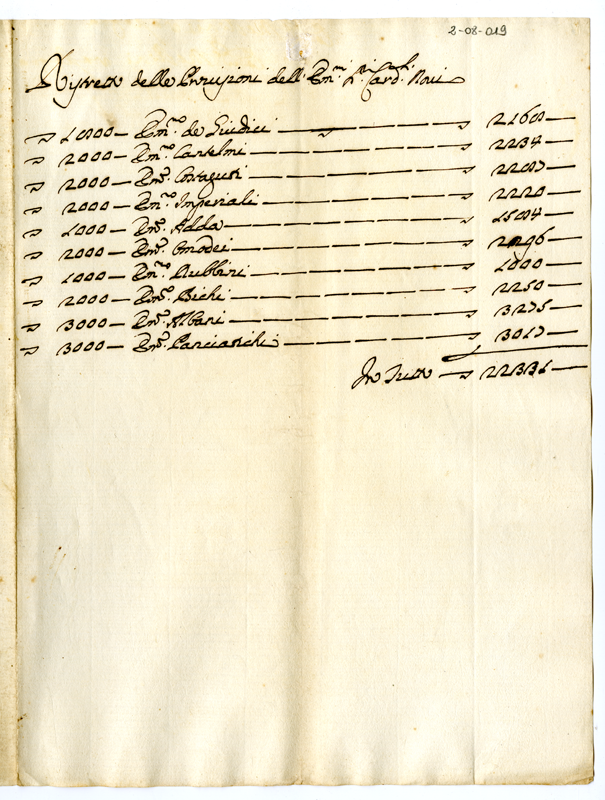 2-08-019
Ristretto delle Provisioni dell' Em.mi S.ri Card.li Novi
∇ 1800 — Em.mo de Giudici — ∇ 2168 —
∇ 2000 — Em.mo Cantelmi — ∇ 2234 —
∇ 2000 — Em.mo Costaguti — ∇ 2287 —
∇ 2000 — Em.mo Imperiali — ∇ 2220 —
∇ 1000 — Em.mo Adda — ∇ 1584 —
∇ 2000 — Em.mo Omodei — ∇ 2296 —
∇ 1000 — Em.mo Rubbini — ∇ 1000 —
∇ 2000 — Em.mo Bichi — ∇ 2250 —
∇ 3000 — Em.mo Albani — ∇ 3275 —
∇ 3000 — Em.mo Panciatichi — ∇ 3017 —
In Tutto — ∇ 22331 —